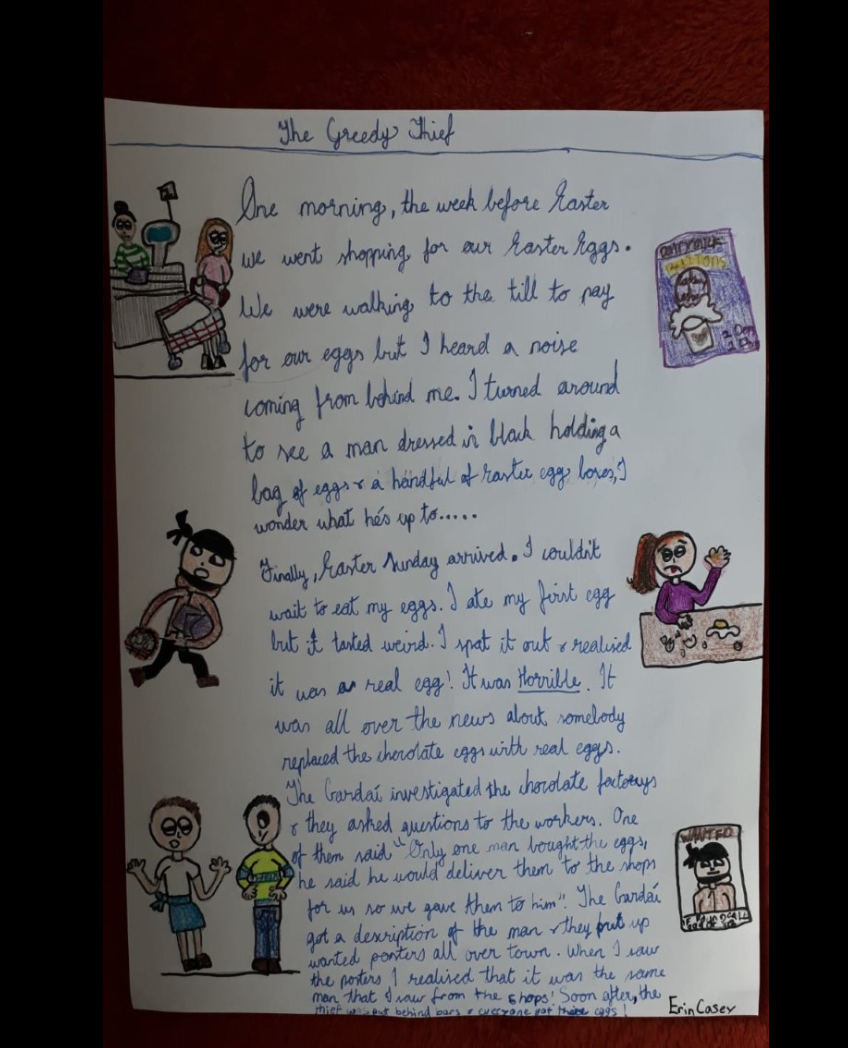 The Greedy Thief
One morning, the week before Easter
we went shopping for our Easter Eggs.
We were walking to the till to pay
for our eggs but I heard a noise
coming from behind me. I turned around
to see a man dressed in black holding a
bag of eggs & a handful of Easter egg boxes, I
wonder what he's up to.....
Finally, Easter Sunday arrived. I couldn't
wait to eat my eggs. I ate my first egg
but it tasted weird. I spat it out & realised
it was a real egg! It was Horrible. It
was all over the news about somebody
replaced the chocolate eggs with real eggs.
The Gardaí investigated the chocolate factorys
& they asked questions to the workers. One
of them said "Only one man bought the eggs,
he said he would deliver them to the shops
for us so we gave them to him". The Gardaí
got a description of the man & they put up
wanted posters all over town. When I saw
the posters I realised that it was the same
man that I saw from the shops! Soon after, the
thief was put behind bars & everyone got their eggs!
DAIRYMILK
BUTTONS
WANTED
Erin Casey